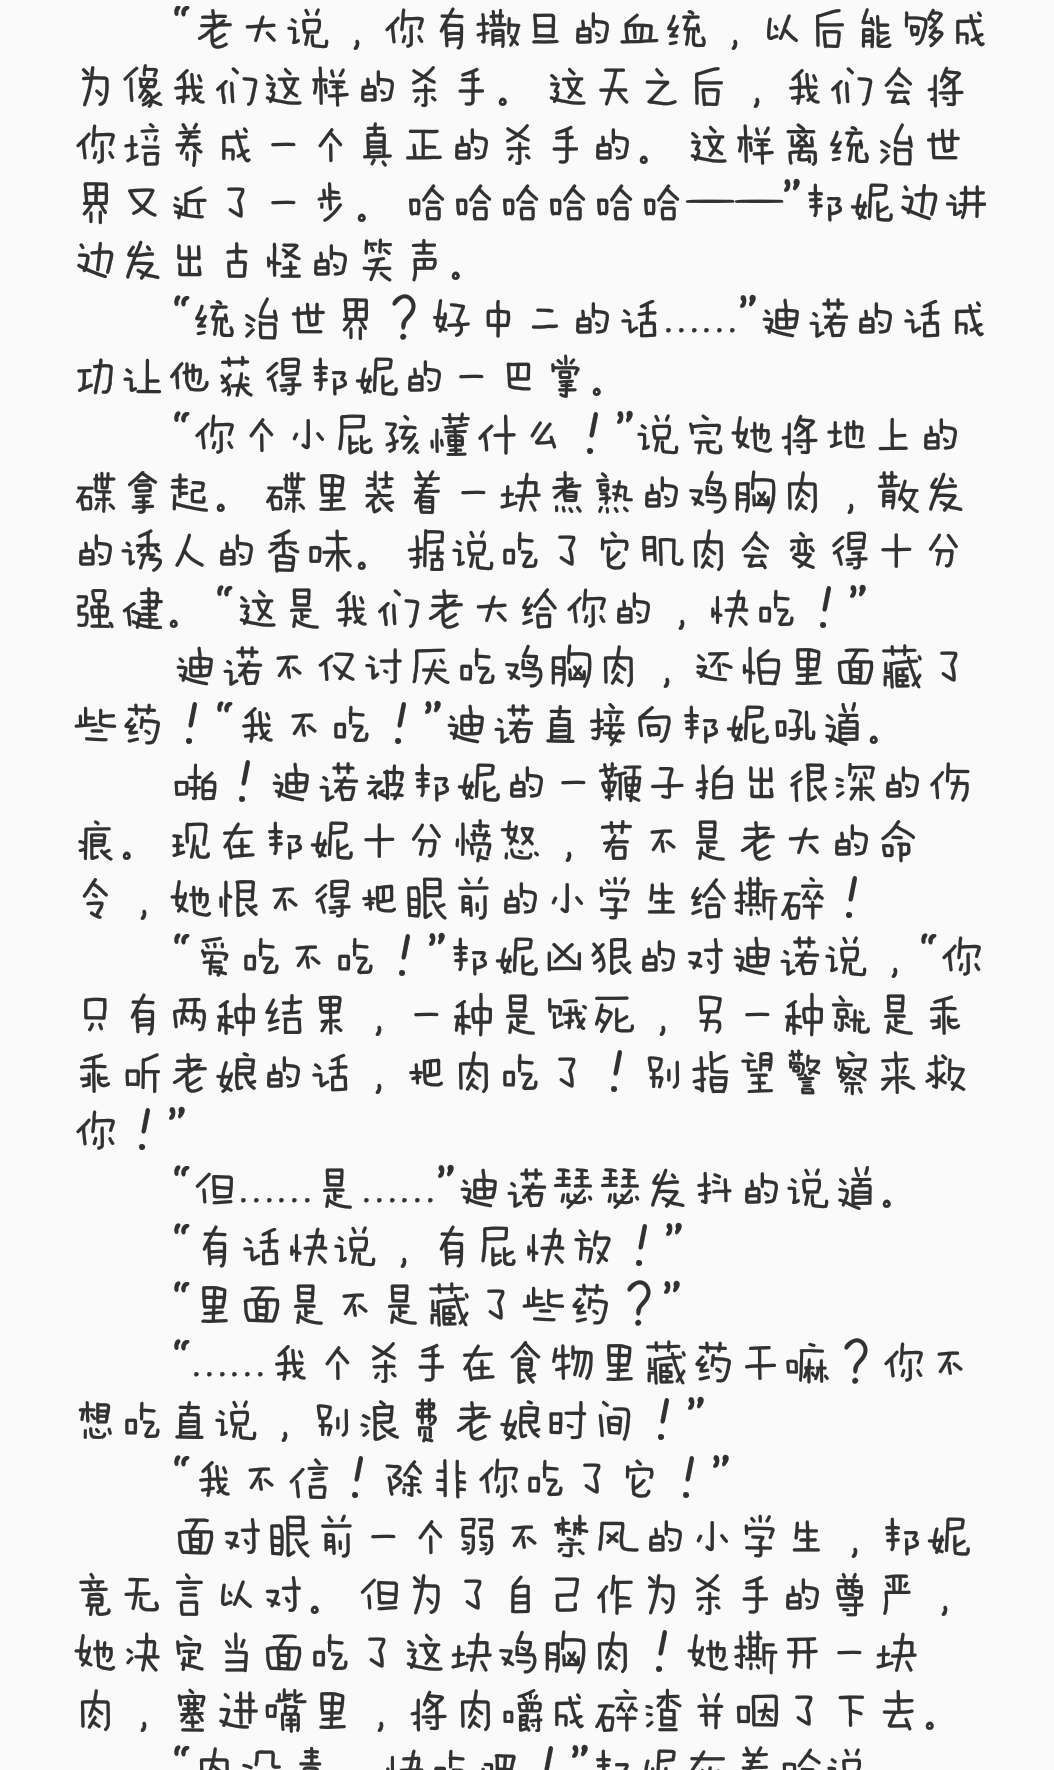 “老大说，你有撒旦的血统，以后能够成
为像我们这样的杀手。这天之后，我们会将
你培养成一个真正的杀手的。这样离统治世
界又近了一步。哈哈哈哈哈哈——”邦妮边讲
边发出古怪的笑声。
“统治世界？好中二的话……”迪诺的话成
功让他获得邦妮的一巴掌。
“你个小屁孩懂什么！”说完她将地上的
碟拿起。碟里装着一块煮熟的鸡胸肉，散发
的诱人的香味。据说吃了它肌肉会变得十分
强健。“这是我们老大给你的，快吃！”
迪诺不仅讨厌吃鸡胸肉，还怕里面藏了
些药！“我不吃！”迪诺直接向邦妮吼道。
啪！迪诺被邦妮的一鞭子拍出很深的伤
痕。现在邦妮十分愤怒，若不是老大的命
令，她恨不得把眼前的小学生给撕碎！
“爱吃不吃！”邦妮凶狠的对迪诺说，“你
只有两种结果，一种是饿死，另一种就是乖
乖听老娘的话，把肉吃了！别指望警察来救
你！”
“但……是……”迪诺瑟瑟发抖的说道。
“有话快说，有屁快放！”
“里面是不是藏了些药？”
“……我个杀手在食物里藏药干嘛？你不
想吃直说，别浪费老娘时间！”
“我不信！除非你吃了它！”
面对眼前一个弱不禁风的小学生，邦妮
竟无言以对。但为了自己作为杀手的尊严，
她决定当面吃了这块鸡胸肉！她撕开一块
肉，塞进嘴里，将肉嚼成碎渣并咽了下去。